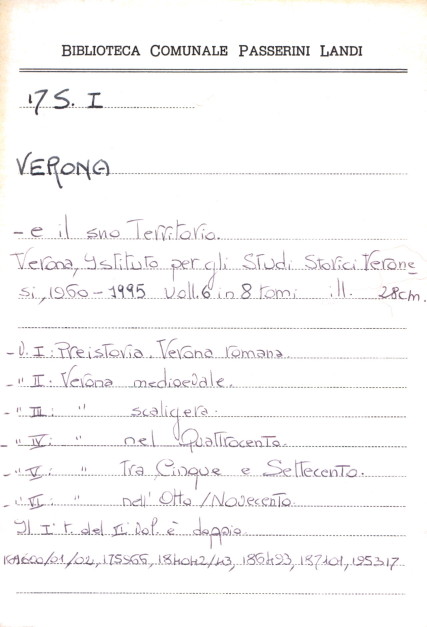 BIBLIOTECA COMUNALE PASSERINI LANDI
17 S. I
VERONA
- e il suo Territorio.
Verona, Istituto per gli Studi Storici Verone
si, 1960 - 1995 voll. 6 in 8 tomi ill. 28cm.
- V. I: Preistoria. Verona romana.
- " II: Verona medioevale.
- " III: " scaligera.
- " IV: " nel Quattrocento.
- " V: " Tra Cinque e Settecento.
- " VI: " nell' Otto/Novecento.
Il I° t. del II° vol. è doppio
/01/02, 175965, 184042/43, 186493, 187101, 195317.